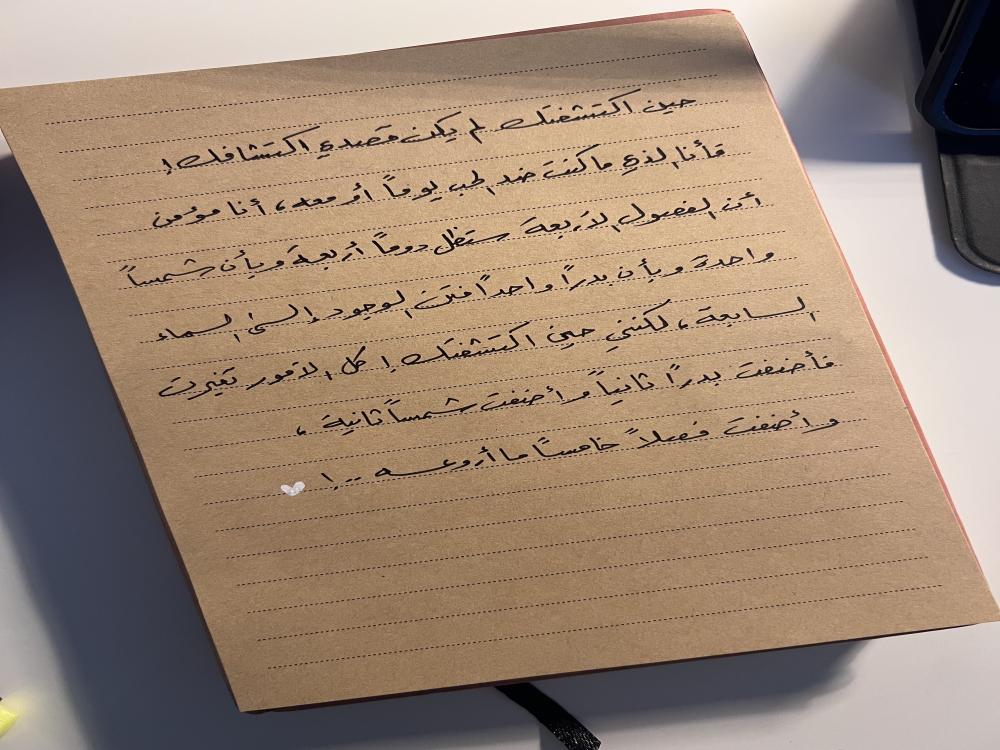 حين اكتشفتك لم يكن قصدي اكتشافك !
فأنا الذي ما كنت ضد الحب يوماً أو معه ، أنا مؤمن
أن الفصول الأربعة ستظل دوماً أربعة وبأن شمساً
واحدة وبأن بدرًا واحدًا فتن الوجود إلى السماء
السابعة ، لكنني حين اكتشفتك ! كل الأمور تغيرت
فأضفت بدرًا ثانياً وأضفت شمساً ثانية ،
وأضفت فصلاً خامسًا ما أروعه ..!